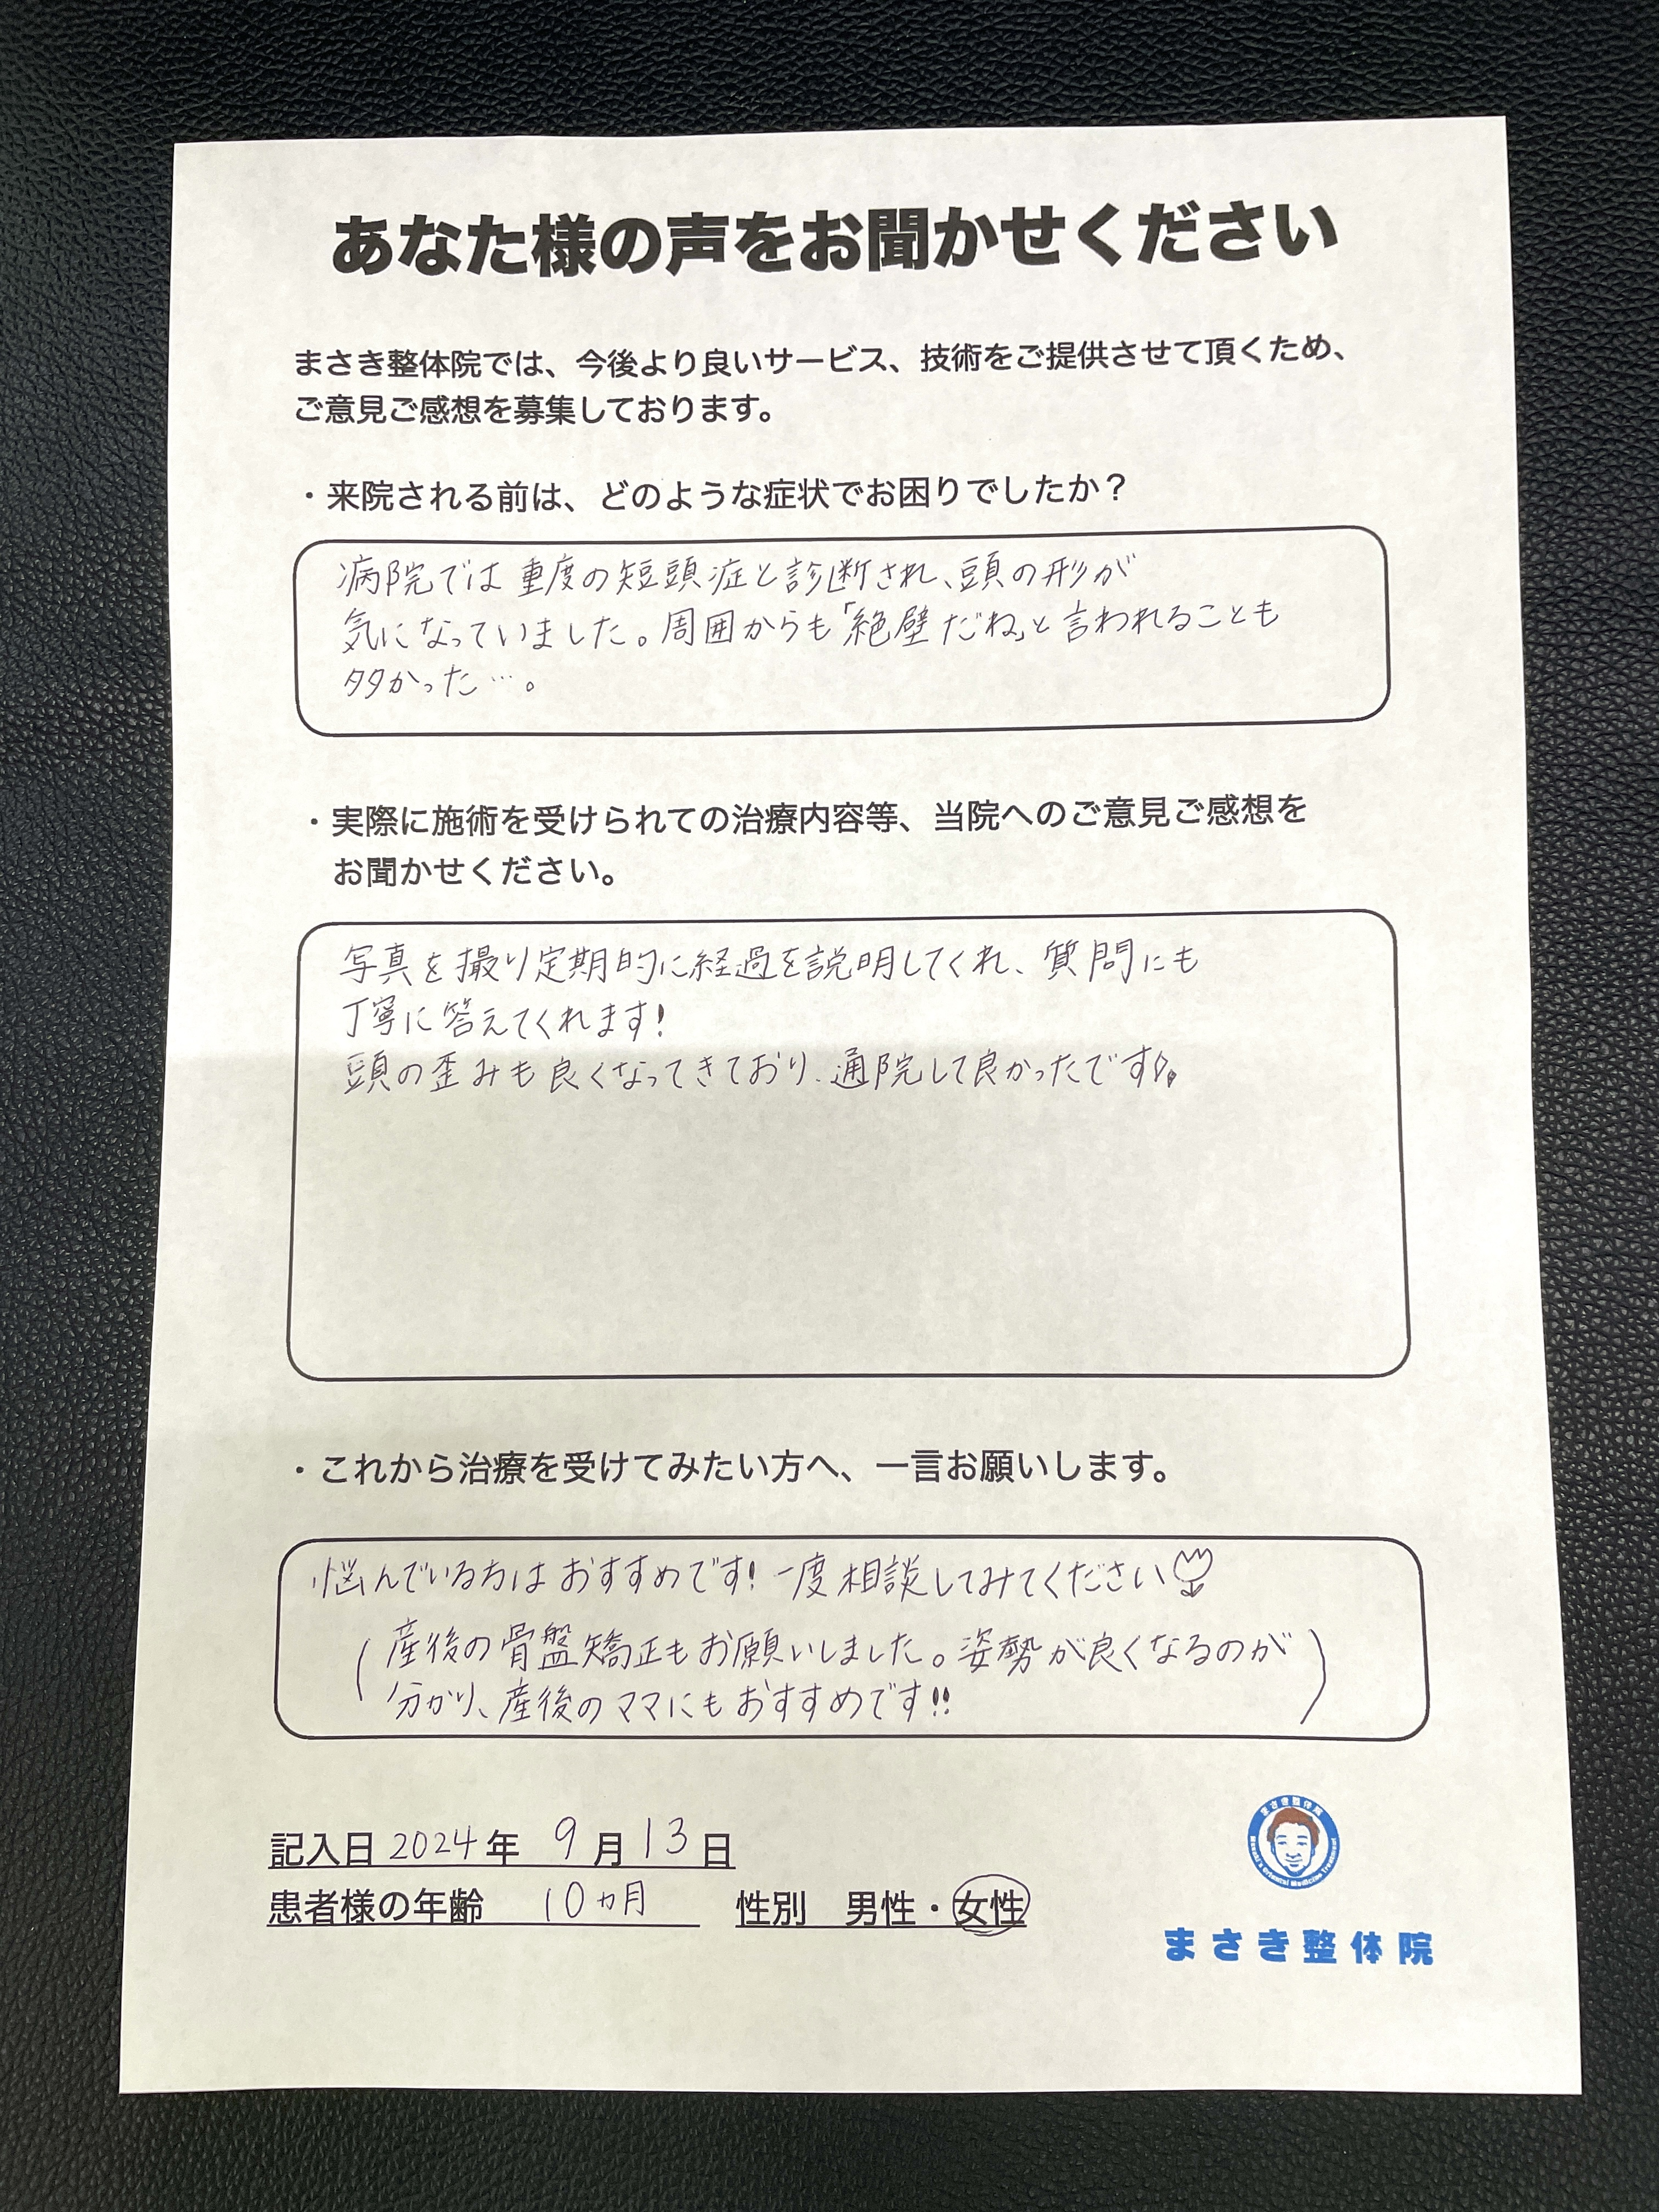 あなた様の声をお聞かせください
まさき整体院では、今後より良いサービス、技術をご提供させて頂くため、
ご意見ご感想を募集しております。
・来院される前は、どのような症状でお困りでしたか？
病院では重度の短頭症と診断され、頭の形が
気になっていました。周囲からも「絶壁だね」と言われることも
多かった…。
・実際に施術を受けられての治療内容等、当院へのご意見ご感想を
お聞かせください。
写真を撮り定期的に経過を説明してくれ、質問にも
丁寧に答えてくれます!
頭の歪みも良くなってきており、通院して良かったです♪。
・これから治療を受けてみたい方へ、一言お願いします。
悩んでいる方はおすすめです! 一度相談してみてください
(産後の骨盤矯正もお願いしました。姿勢が良くなるのが
分かり、産後のママにもおすすめです!!)
記入日 2024年 9月13日
患者様の年齢 10ヵ月 性別 男性・女性
まさき整体院
Masaki's Oriental Medicine Treatment
まさき整体院